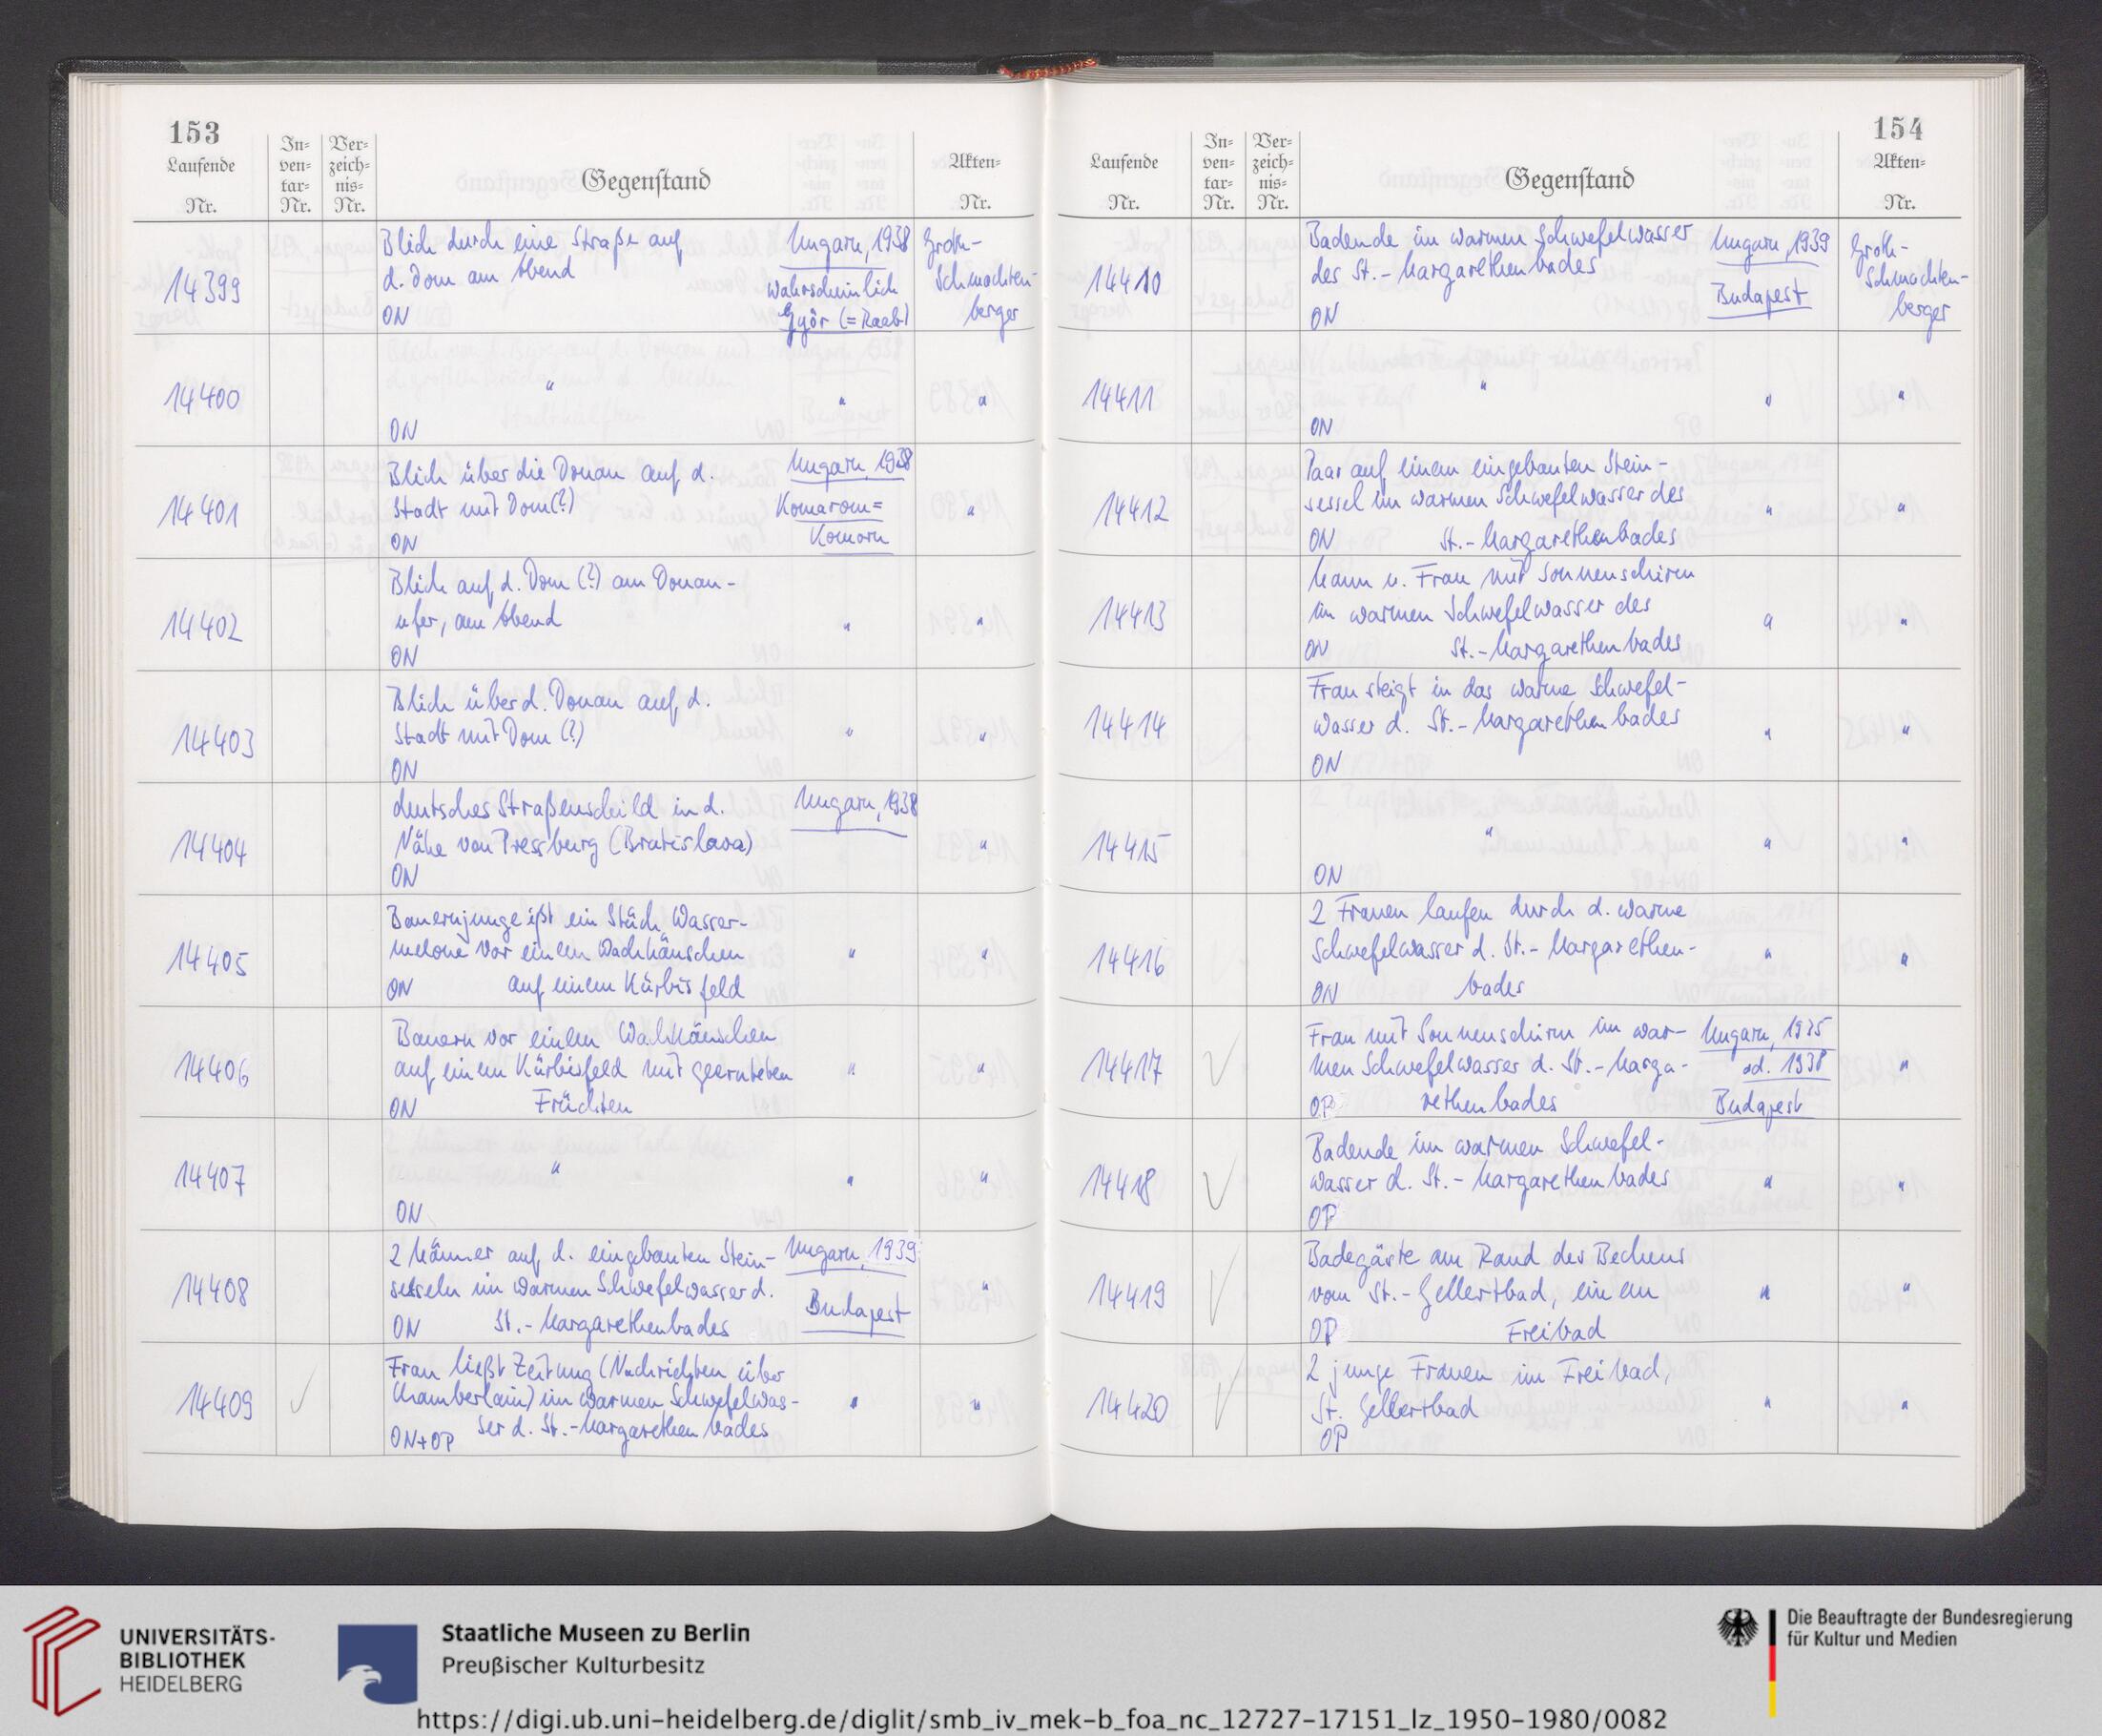 153
Laufende Nr.
In-ven-tar-Nr.
Ver-zeich-nis-Nr.
Gegenstand
Akten-Nr.
14399
Blick durch eine Straße auf
d. Dom am Abend
ON
Ungarn, 1938
wahrscheinlich
Györ (=Raab)
Groth-
Schmachten-
berger
14400
"
ON
"
"
14401
Blick über die Donau auf d.
Stadt mit Dom(?)
ON
Ungarn, 1938
Komarom=
Komorn
"
14402
Blick auf d. Dom (?) am Donau-
ufer, am Abend
ON
"
"
14403
Blick über d. Donau auf d.
Stadt mit Dom (?)
ON
"
"
14404
deutsches Straßenschild in d.
Nähe von Pressburg (Bratislava)
ON
Ungarn, 1938
"
14405
Bauernjunge ißt ein Stück Wasser-
melone vor einem Wachhäuschen
ON auf einem Kürbisfeld
"
"
14406
Bauern vor einem Wachhäuschen
auf einem Kürbisfeld mit geernteten
ON Früchten
"
"
14407
"
ON
"
"
14408
2 Männer auf d. eingebauten Stein-
sesseln im warmen Schwefelwasser d.
ON St.-Margarethenbades
Ungarn, 1939
Budapest
"
14409
Frau ließt Zeitung (Nachrichten über
Chamberlain) im warmen Schwefelwas-
ser d. St.-Margarethenbades
ON+OP
"
"
154
Laufende Nr.
In-ven-tar-Nr.
Ver-zeich-nis-Nr.
Gegenstand
Akten-Nr.
14410
Badende im warmen Schwefelwasser
des St.-Margarethenbades
ON
Ungarn, 1939
Budapest
Groth-
Schmachten-
berger
14411
"
ON
"
"
14412
Paar auf einem eingebauten Stein-
sessel im warmen Schwefelwasser des
ON St.-Margarethenbades
"
"
14413
Mann u. Frau mit Sonnenschirm
im warmen Schwefelwasser des
ON St.-Margarethenbades
"
"
14414
Frau steigt in das warme Schwefel-
wasser d. St.-Margarethenbades
ON
"
"
14415
"
ON
"
"
14416
2 Frauen laufen durch d. warme
Schwefelwasser d. St.-Margarethen-
ON bades
"
"
14417
Frau mit Sonnenschirm im war-
men Schwefelwasser d. St.-Marga-
OP rethenbades
Ungarn, 1935
od. 1938
Budapest
"
14418
Badende im warmen Schwefel-
wasser d. St.-Margarethenbades
OP
"
"
14419
Badegäste am Rand des Beckens
vom St.-Gellertbad, einem
OP Freibad
"
"
14420
2 junge Frauen im Freibad,
St. Gellertbad
OP
"
"
UNIVERSITÄTS-
BIBLIOTHEK
HEIDELBERG
Staatliche Museen zu Berlin
Preußischer Kulturbesitz
Die Beauftragte der Bundesregierung
für Kultur und Medien
https://digi.ub.uni-heidelberg.de/diglit/smb_iv_mek-b_foa_nc_12727-17151_lz_1950-1980/0082